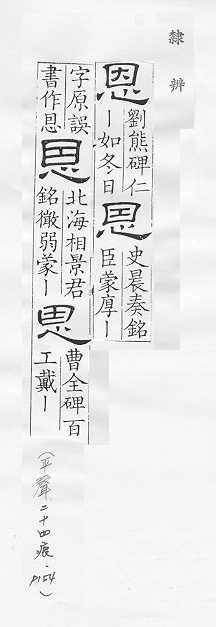 隸辨
恩
劉熊碑仁
丨如冬日
恩
史晨奏銘
臣蒙厚丨
字原誤
書作恩
恩
北海相景君
銘微弱蒙丨
恩
曹全碑百
工戴丨
(平聲二十四痕．P154)